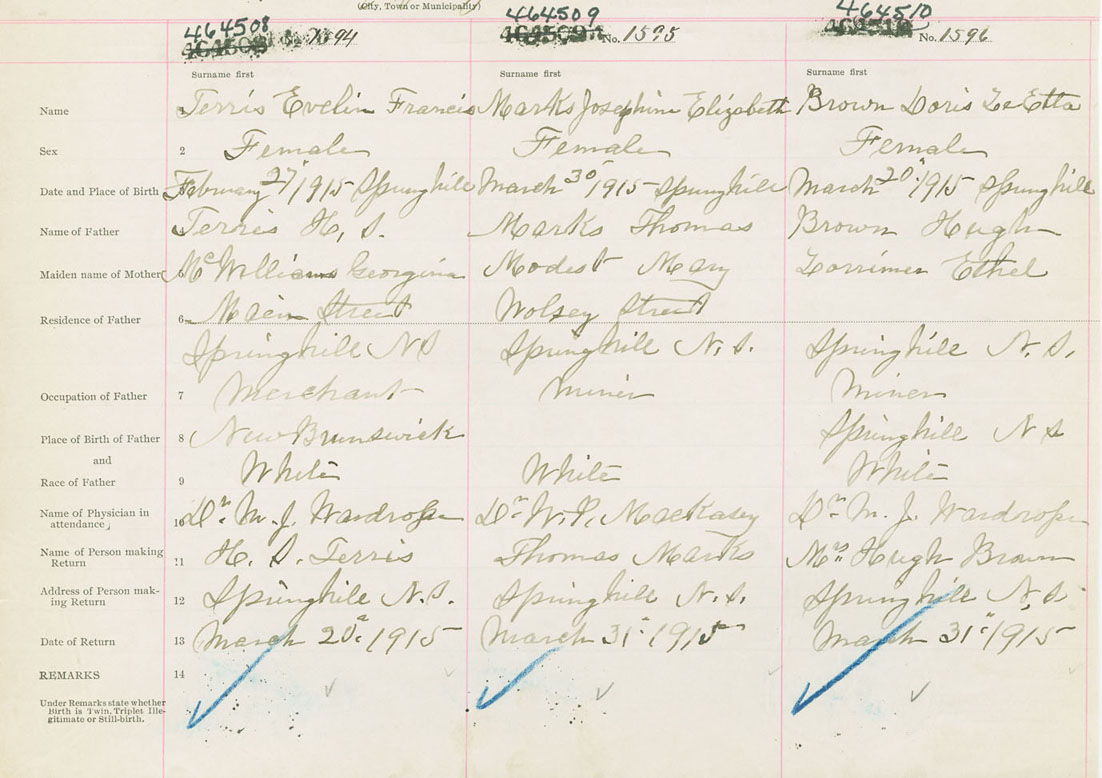 (City, Town or Municipality)
464508 464509 464510
No. 1594 No. 1595 No. 1596
Surname first Surname first Surname first
Name Terris Evelin Francis Marks Josephine Elizabeth Brown Doris LeEtta
Sex 2 Female Female Female
Date and Place of Birth February 27" 1915 Springhill March 30" 1915 Springhill March 20" 1915 Springhill
Name of Father Terris H. S. Marks Thomas Brown Hugh
Maiden name of Mother 5 McWilliams Georgina Modest Mary Lorrimer Ethel
Residence of Father 6 Main Street Wolsey Street
Springhill NS Springhill N.S. Springhill N.S.
Occupation of Father 7 Merchant Miner Miner
Place of Birth of Father 8 New Brunswick Springhill NS
and
Race of Father 9 White White White
Name of Physician in
attendance, 10 Dr. M. J. Wardrope Dr. W. P. MacKasey Dr. M. J. Wardrope
Name of Person making
Return 11 H. S. Terris Thomas Marks Mrs. Hugh Brown
Address of Person mak-
ing Return 12 Springhill N.S. Springhill N.S. Springhill N.S.
Date of Return 13 March 20" 1915 March 31" 1915 March 31" 1915
REMARKS 14
Under Remarks state whether
Birth is Twin, Triplet Ille-
gitimate or Still-birth.